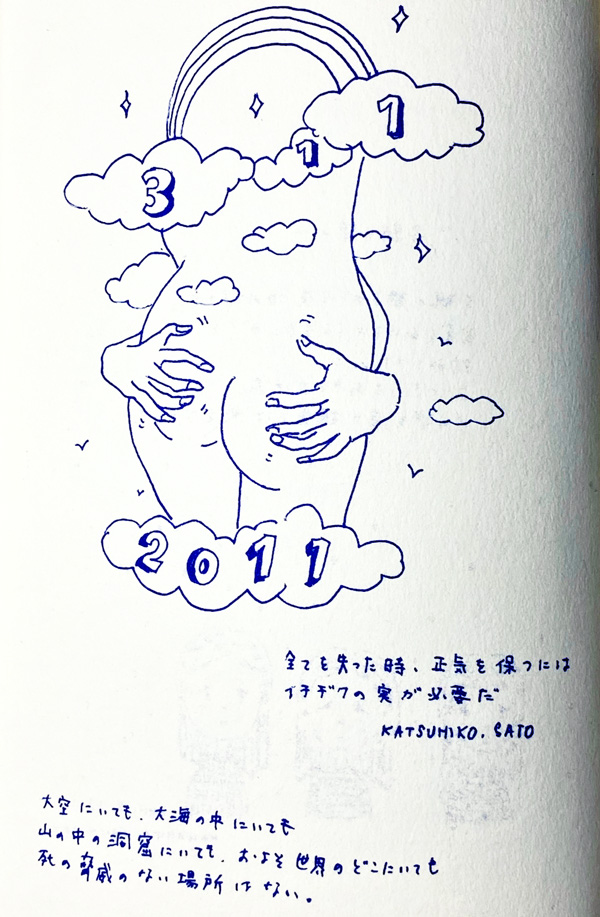 1
1
3
2011
全てを失った時、正気を保つには
イチヂクの実が必要だ
KATSUHIKO. SATO
大空にいても、大海の中にいても
山の中の洞窟にいても、およそ世界のどこにいても
死の脅威のない場所はない。